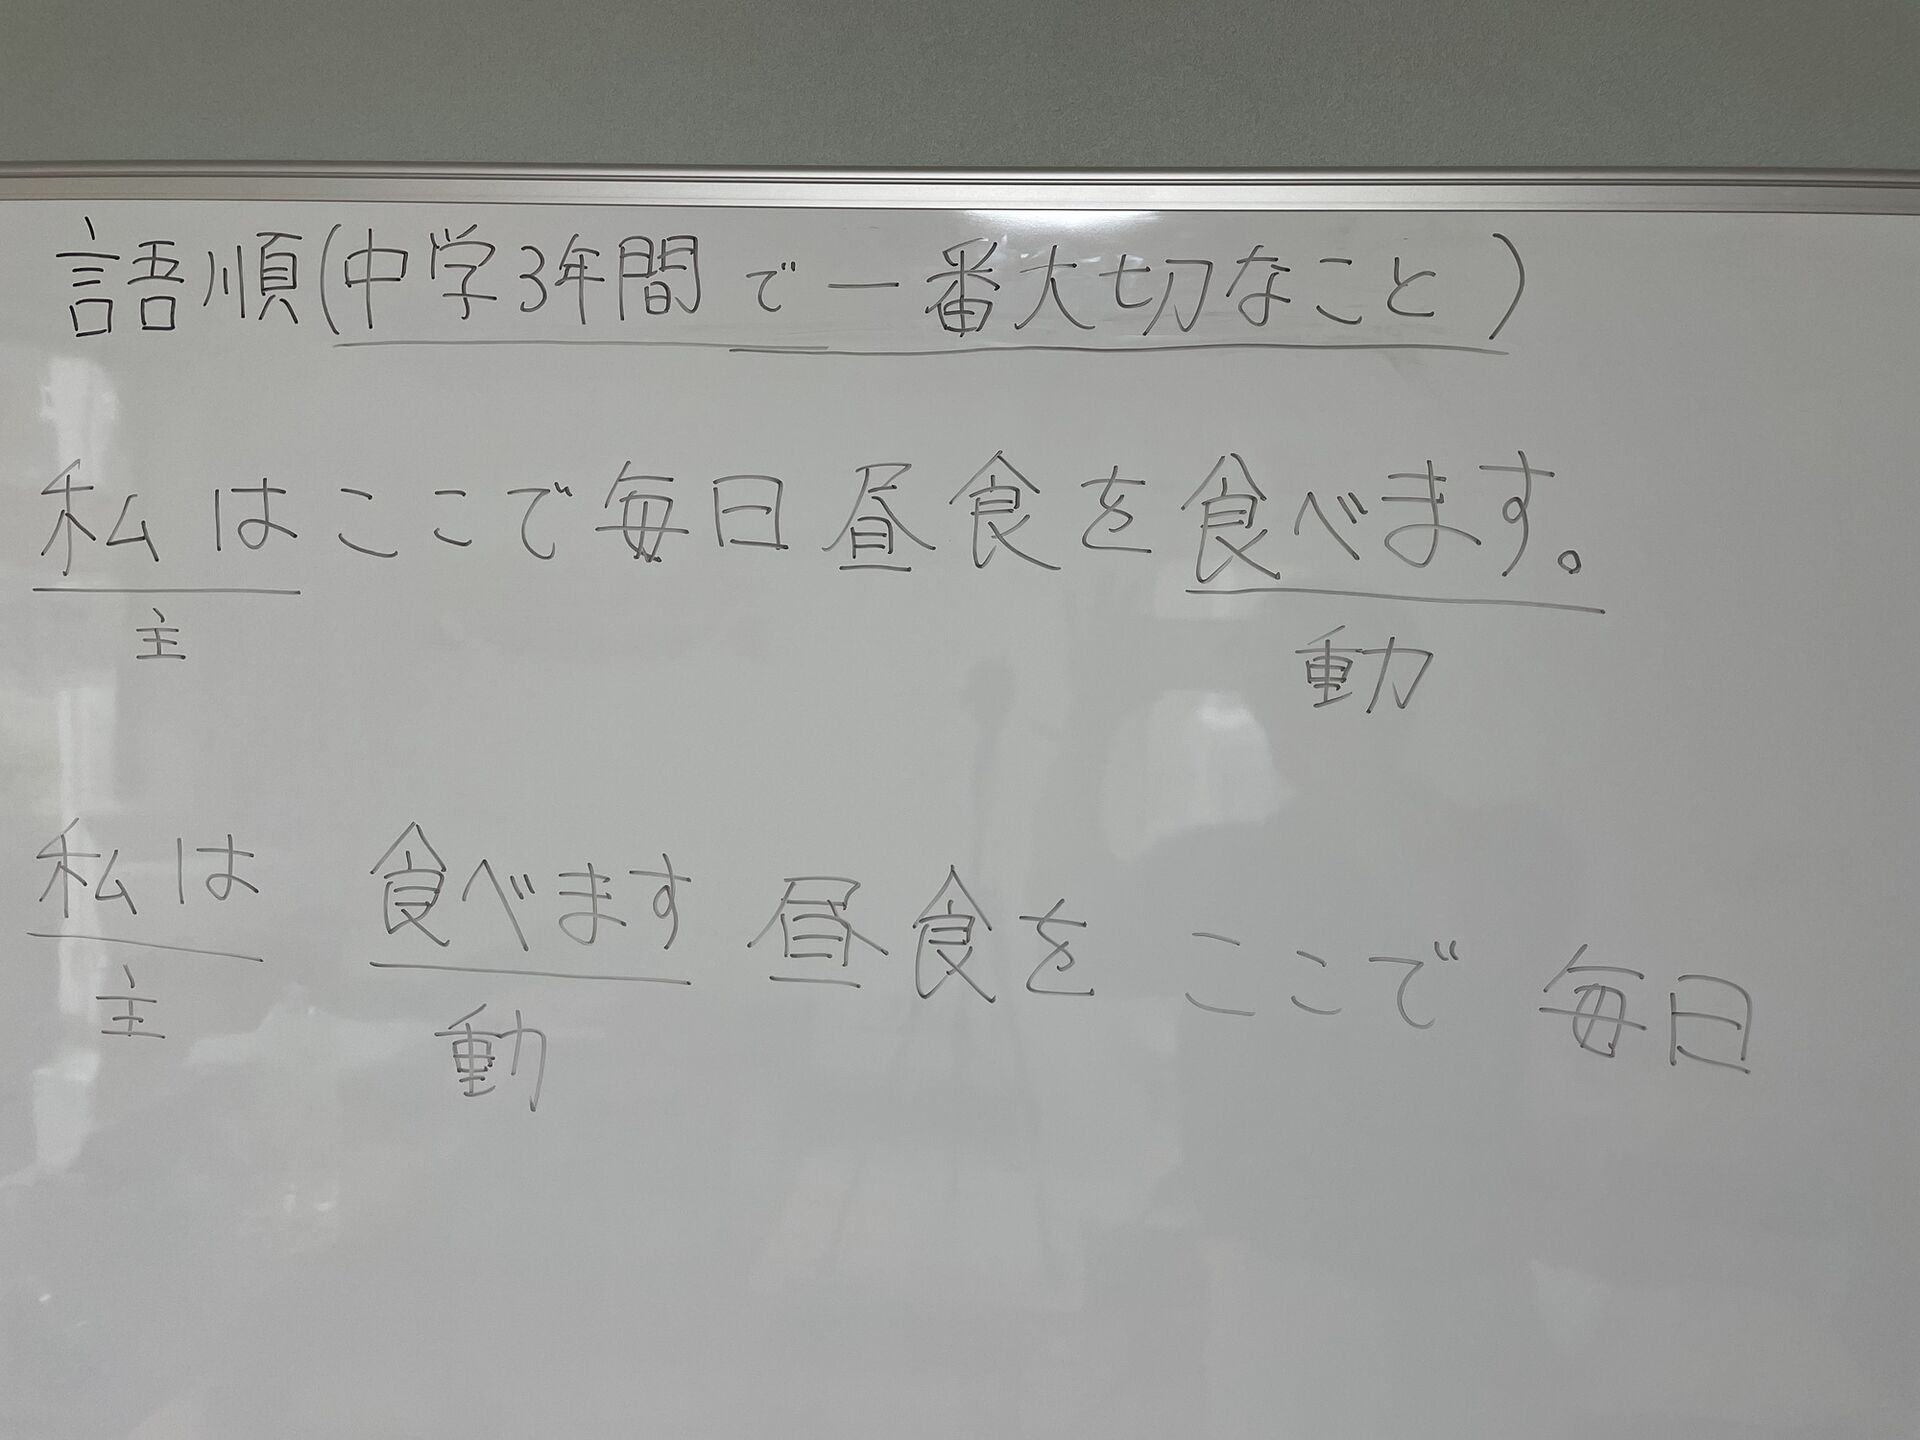 語順(中学3年間で一番大切なこと)
私はここで毎日昼食を食べます。
主 動
私は 食べます 昼食を ここで 毎日
主 動